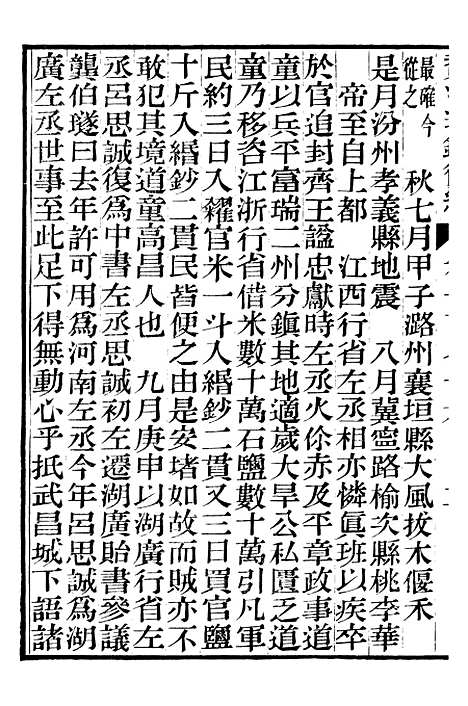 最確今
從之　秋七月甲子潞州襄垣縣大風拔木偃禾
是月汾州孝義縣地震　八月冀寧路榆次縣桃李華
帝至自上都　江西行省左丞相亦憐眞班以疾卒
於官追封齊王諡忠獻時左丞火你赤及平章政事道
童以兵平富瑞二州分鎭其地適歲大旱公私匱乏道
童乃移咨江浙行省借米數十萬石鹽數十萬引凡軍
民約三日入糴官米一斗入緡鈔二貫又三日買官鹽
十斤入緡鈔二貫民皆便之由是安堵如故而賊亦不
敢犯其境道童高昌人也　九月庚申以湖廣行省左
丞呂思誠復爲中書左丞思誠初左遷湖廣貽書參議
龔伯璲曰去年許可用爲河南左丞今年呂思誠爲湖
廣左丞世事至此足下得無動心乎抵武昌城下語諸